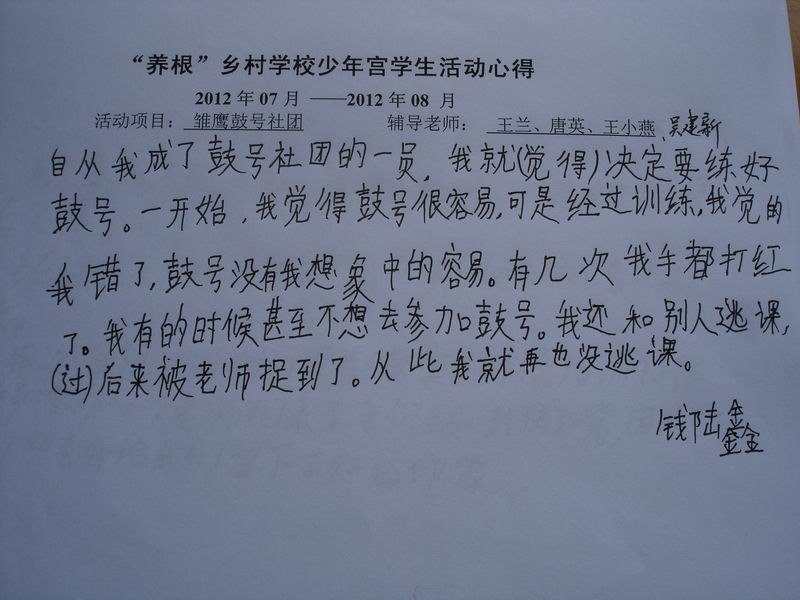 “养根”乡村学校少年宫学生活动心得
2012 年 07 月 ——2012 年 08 月
活动项目： 雏鹰鼓号社团 辅导老师： 王兰、唐英、王小燕、吴建新
自从我成了鼓号社团的一员，我就(觉得)决定要练好
鼓号。一开始，我觉得鼓号很容易，可是经过训练，我觉的
我错了，鼓号没有我想象中的容易。有几次我手都打红
了。我有的时候甚至不想去参加鼓号。我还和别人逃课，
后来被老师捉到了。从此我就再也没逃课。
钱陆鑫